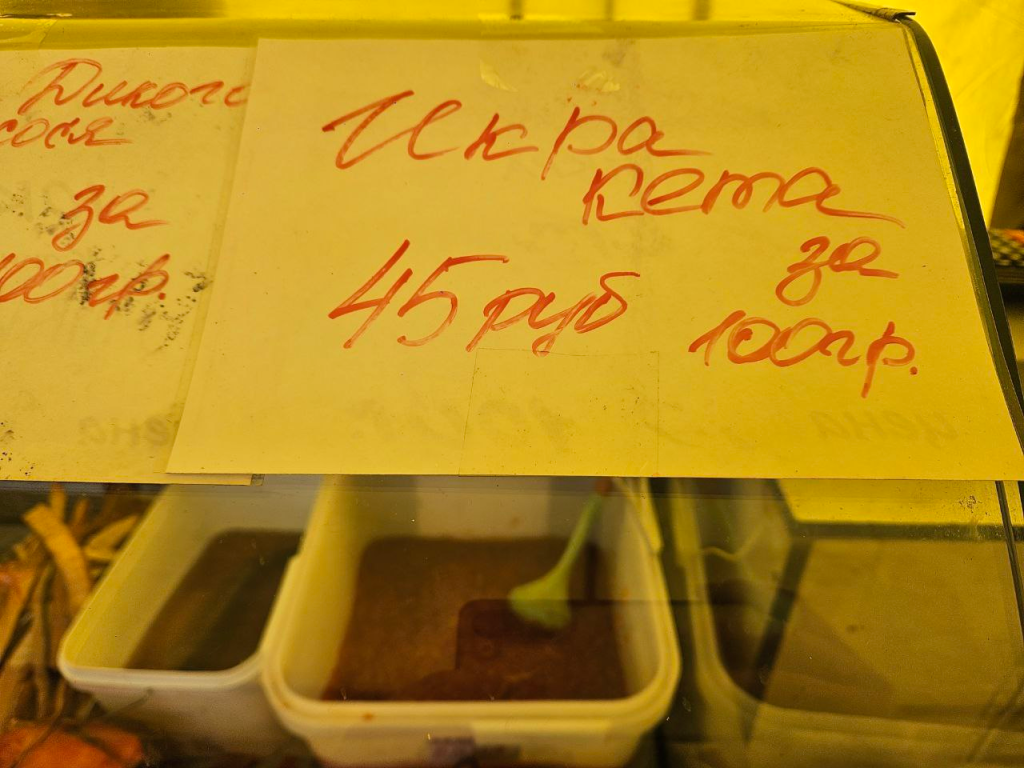 Дикого
сося
за
100гр.
Икра
кета
за
45 руб
100гр.
цена